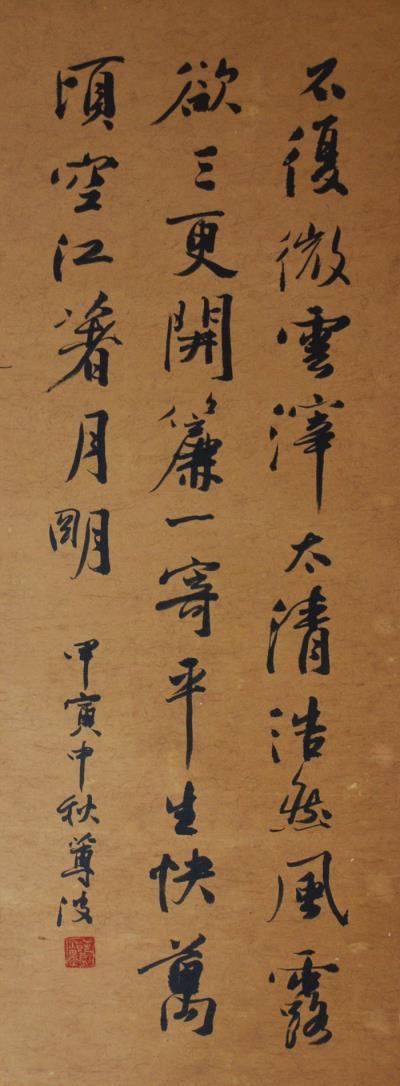 不復微雲滓太清浩然風露
欲三更開簾一寄平生快萬
頃空江著月明
甲寅中秋萼波